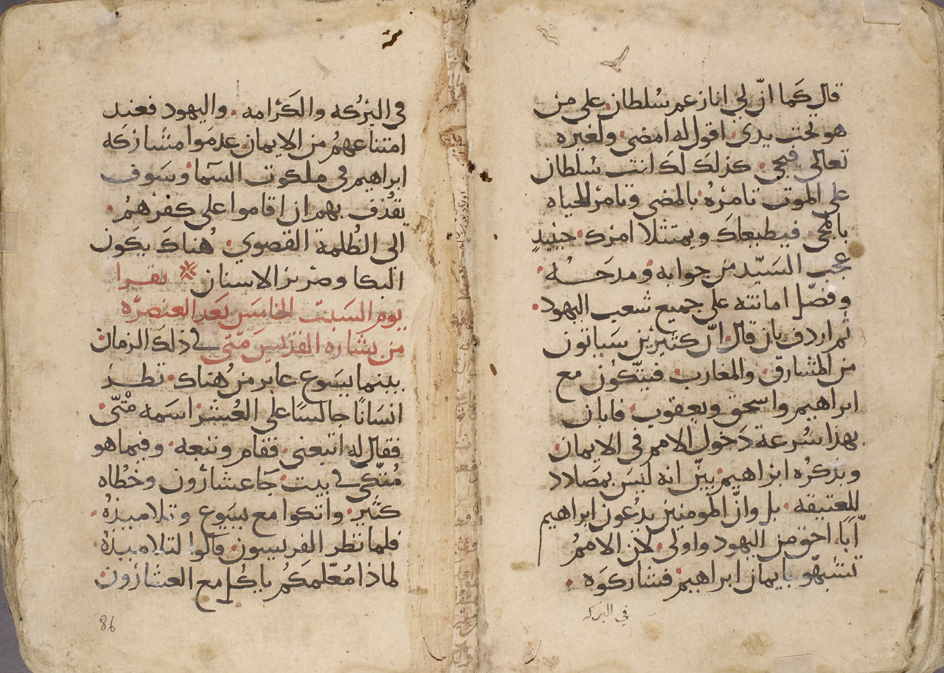 قال كما ان لي انا زعم سلطان على من
هو تحت يدي اقول له امضي ولغيره
تعالى فيجي كذلك لك انت سلطان
على الموت تامره بالمضي وتامر الحياه
بالمجي فيطيعك ويمتثلا امرك حينيدٍ
عجب السيّد من جوابه ومدحه
وفضّل امانته على جميع شعب اليهود
ثم اردف بان قال انّ كتيرين سياتون
من المشارق والمغارب فيتّكون مع
ابراهيم واسحق ويعقوب فابان
بهذا سرعة دخول الامم في الايمان
وبذكره ابراهيم بيّن انه ليس بمضادد
للعتيقه بل وانّ المومنين يدعون ابراهيم
اباً احق من اليهود واولى لان الامم
تشبّهو بايمان ابراهيم فشاركوه
في البركه
في البركه والكرامه واليهود فعند
امتناعهم من الايمان عدموا مشاركه
ابراهيم في ملكوت السما وسوف
يقذف بهم ان اقاموا على كفرهم
الى الظلمة القصوي هناك يكون
البكا وصرير الاسنان يقرا
يوم السبت الخامس بعد العنصره
من بشاره القديس متّى في ذلك الزمان
بينما يسوع عابر من هناك نظر
انسانا جالسا على العشر اسمه متّى
فقال له اتبعني فقام وتبعه وفيما هو
متكي في بيت جا عشارون وخطاه
كتير واتكوا مع يسوع وتلاميذه
فلما نظر الفريسيون قالوا لتلاميذه
لماذا معلمكم ياكل مع العشارون
86